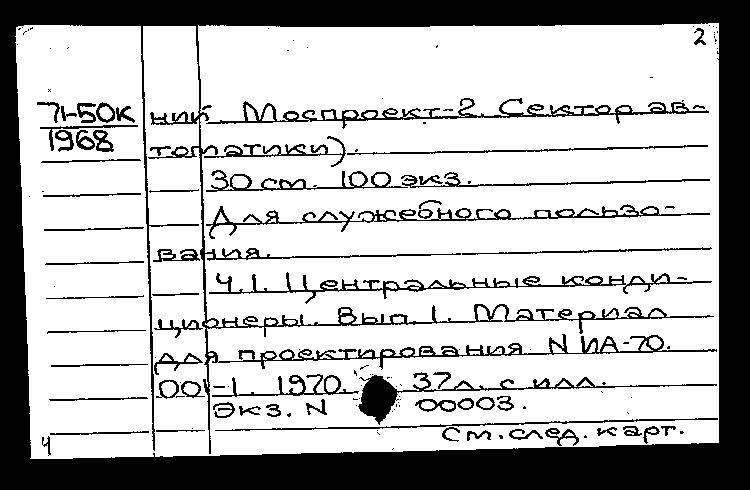 2
71-50К
1968
ний. Моспроект-2. Сектор ав-
томатики).
30 ст. 100 экз.
Для служебного пользо-
вания.
Ч.1. Центральные конди-
ционеры. Вып. 1. Материал
для проектирования N ИА-70.
001-1. 1970. 37л. с илл.
Экз. N 00003.
См. след. карт.
4